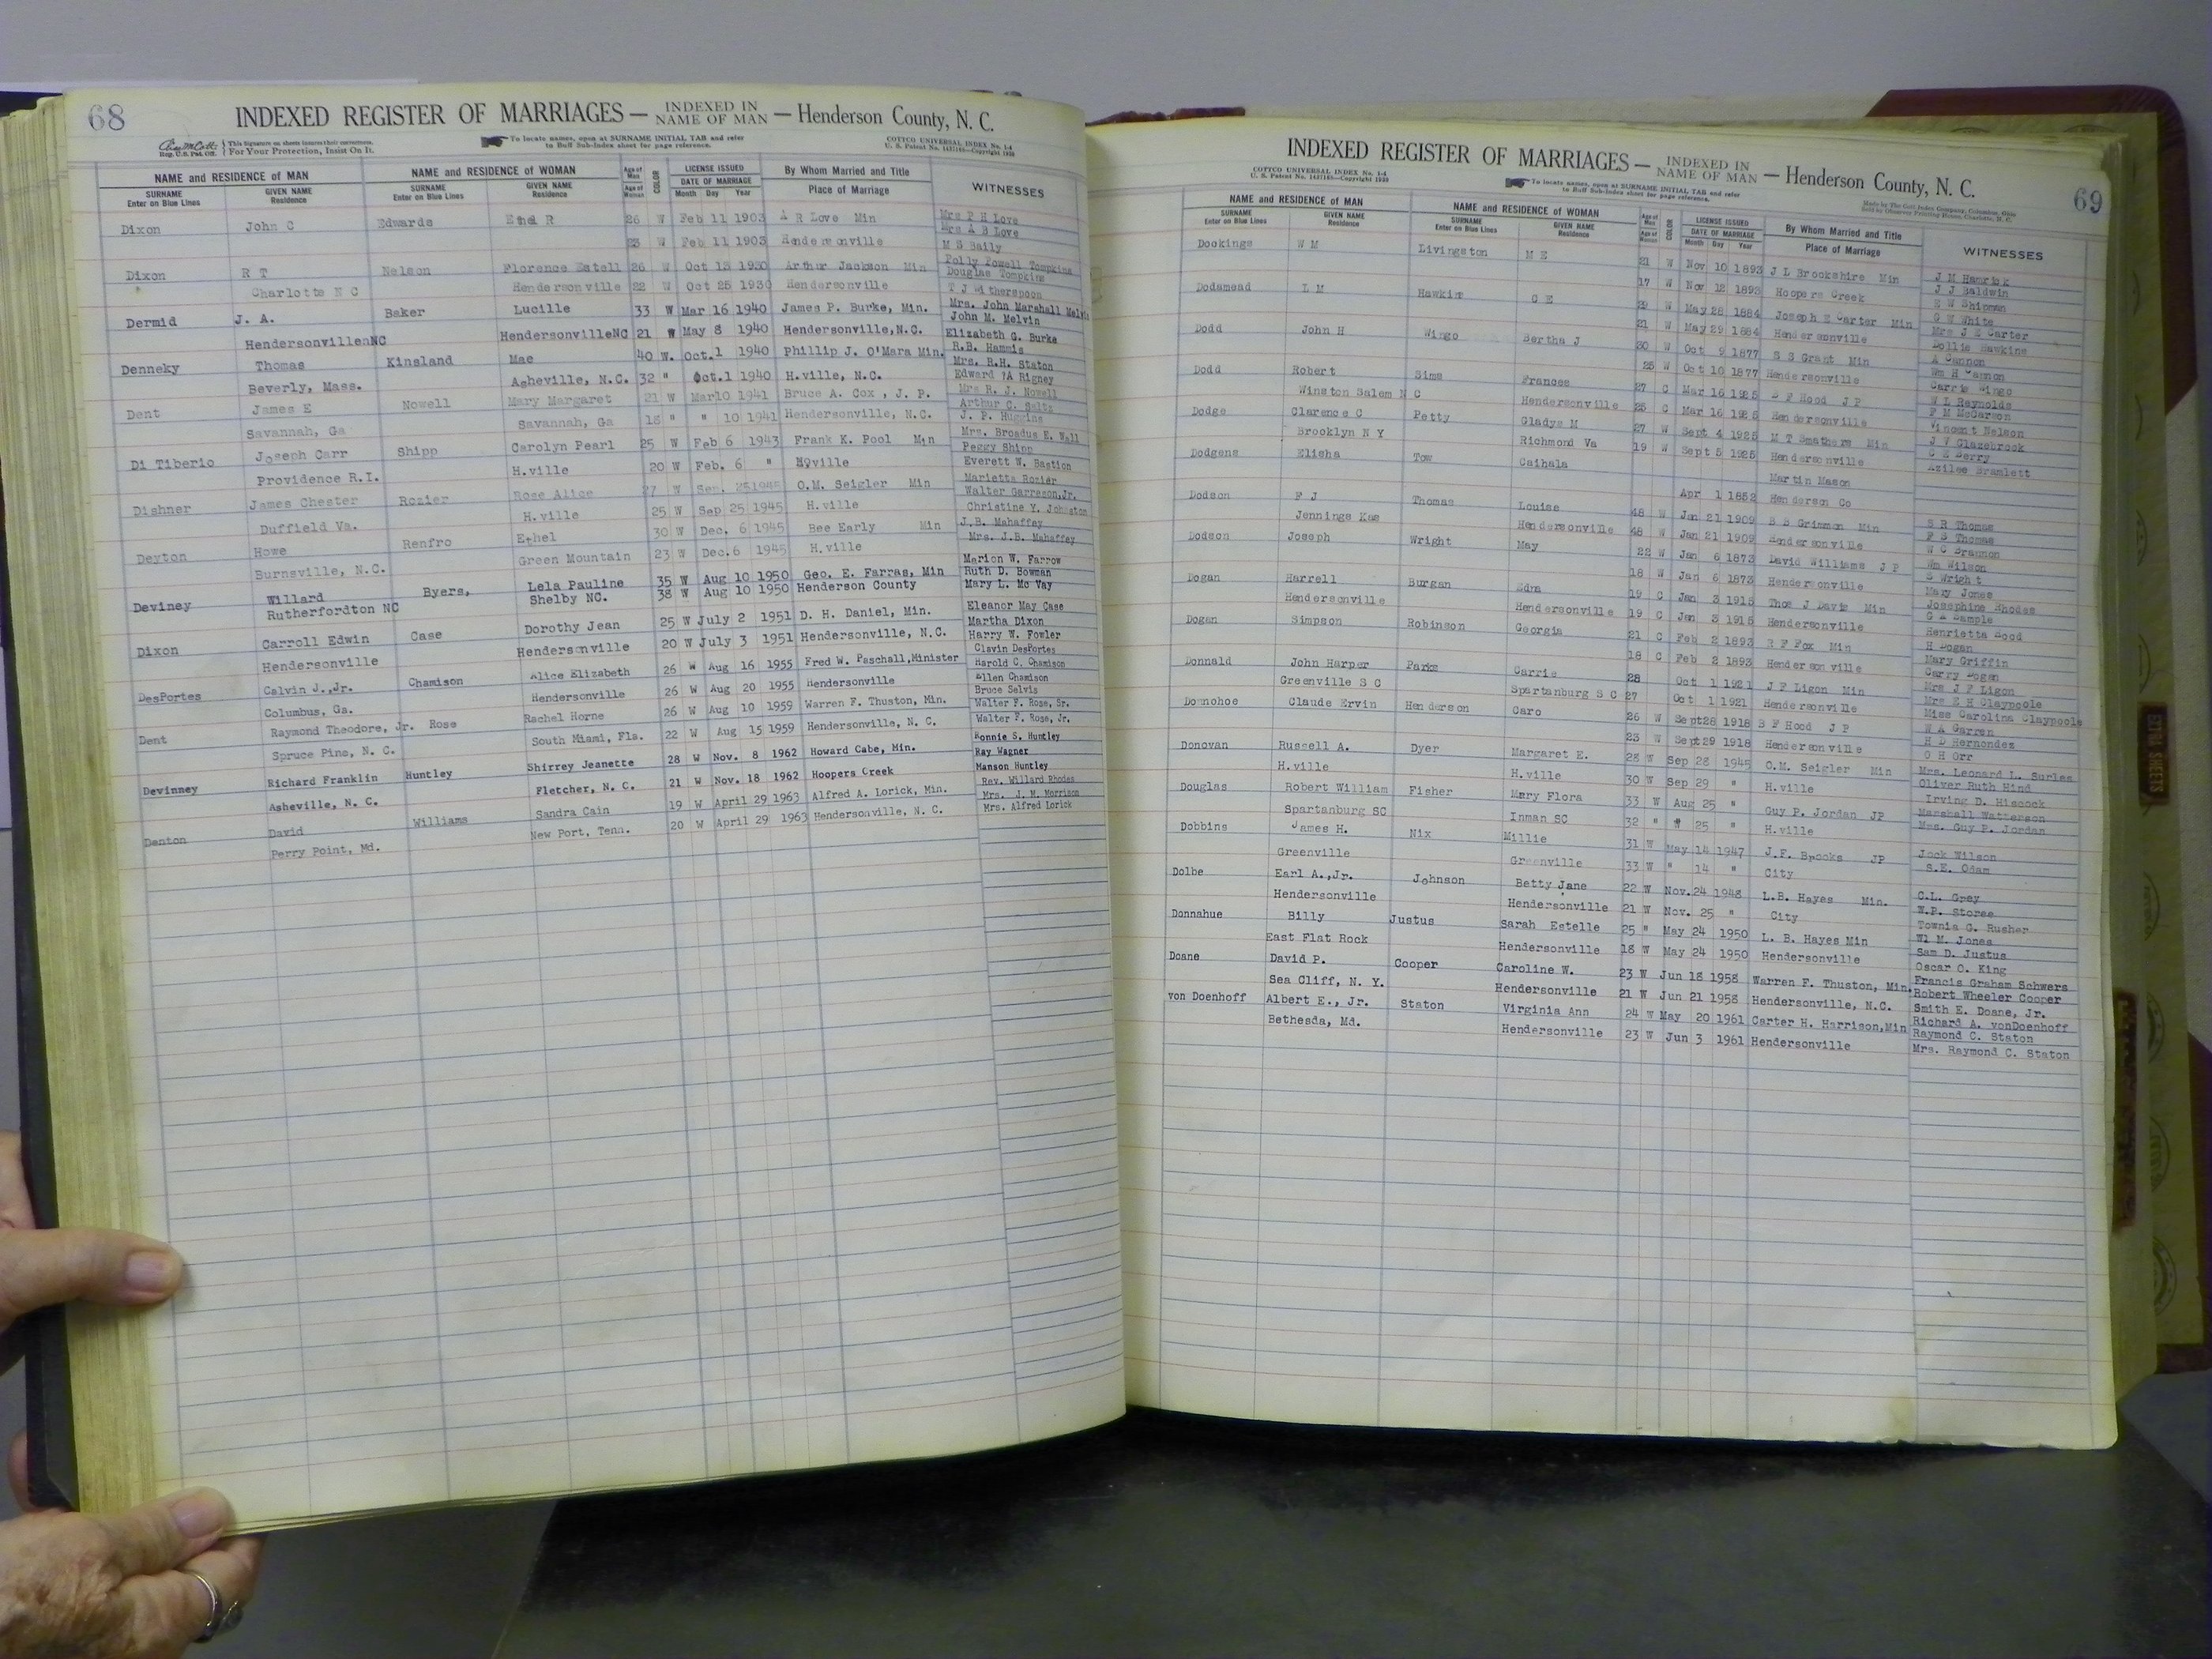 68
INDEXED REGISTER OF MARRIAGES — INDEXED IN NAME OF MAN — Henderson County, N. C.
Reg. U.S. Pat. Off. This Signature on sheets insures their correctness. For Your Protection, Insist On It.
To locate names, open at SURNAME INITIAL TAB and refer to Buff Sub-Index sheet for page reference.
COTTCO UNIVERSAL INDEX No. 1-4
NAME and RESIDENCE OF MAN NAME and RESIDENCE OF WOMAN Age of Man Age of Woman COLOR LICENSE ISSUED DATE OF MARRIAGE By Whom Married and Title Place of Marriage WITNESSES
SURNAME Enter on Blue Lines GIVEN NAME Residence SURNAME Enter on Blue Lines GIVEN NAME Residence Month Day Year
Dixon John C Edwards Ethel R 26 W Feb 11 1903 A R Love Min Mrs P H Love
Mrs A B Love
23 W Feb 11 1903 Hendersonville M S Baily
Dixon R T Nelson Florence Estell 26 W Oct 1930 Arthur Jackson Min Polly Powell Tompkins
Douglas Tompkins
Charlotte N C Hendersonville 22 W Oct 25 1930 Hendersonville T J Witherspoon
Dermid J. A. Baker Lucille 33 W Mar 16 1940 James P. Burke, Min. Mrs. John Marshall Melvin
John M. Melvin
HendersonvilleNC HendersonvilleNC 21 W May 8 1940 Hendersonville,N.C. Elizabeth G. Burke
Denneky Thomas Kinsland Mae 40 W. Oct.1 1940 Phillip J. O'Mara Min. R.B. Hammis
Mrs. R.H. Staton
Beverly, Mass. Asheville, N.C. 32 " Oct.1 1940 H.ville, N.C. Edward A Rigney
Dent James E Nowell Mary Margaret 21 W Mar10 1941 Bruce A. Cox , J. P. Mrs R. J. Nowell
Arthur C. Seitz
Savannah, Ga Savannah, Ga 18 " " 10 1941 Hendersonville, N.C. J. P. Huggins
Di Tiberio Joseph Carr Shipp Carolyn Pearl 25 W Feb 6 1943 Frank K. Pool Min Mrs. Broadus E. Wall
Peggy Shipp
Providence R.I. H.ville 20 W Feb. 6 " H.ville Everett W. Bastion
Dishner James Chester Rozier Rose Alice 27 W Sep. 25 1945 O.M. Seigler Min Marietta Rozier
Walter Garreson,Jr.
Duffield Va. H.ville 25 W Sep 25 1945 H.ville Christine Y. Johnston
Deyton Howe Renfro Ethel 30 W Dec. 6 1945 Bee Early Min J.B. Mahaffey
Mrs. J.B. Mahaffey
Burnsville, N.C. Green Mountain 23 W Dec.6 1945 H.ville
Marion W. Farrow
Deviney Willard Byers, Lela Pauline 35 W Aug 10 1950 Geo. E. Farras, Min Ruth D. Bowman
Rutherfordton NC Shelby NC. 38 W Aug 10 1950 Henderson County Mary L. Mc Vay
Eleanor May Case
Dixon Carroll Edwin Case Dorothy Jean 25 W July 2 1951 D. H. Daniel, Min. Martha Dixon
Hendersonville Hendersonville 20 W July 3 1951 Hendersonville, N.C. Harry W. Fowler
Clavin DesPortes
DesPortes Calvin J.,Jr. Chamison Alice Elizabeth 26 W Aug 16 1955 Fred W. Paschall,Minister Harold C. Chamison
Ellen Chamison
Columbus, Ga. Hendersonville 26 W Aug 20 1955 Hendersonville Bruce Selvis
Dent Raymond Theodore, Jr. Rose Rachel Horne 26 W Aug 10 1959 Warren F. Thuston, Min. Walter F. Rose, Sr.
Walter F. Rose, Jr.
Spruce Pine, N. C. South Miami, Fla. 22 W Aug 15 1959 Hendersonville, N. C.
Bonnie S. Huntley
Devinney Richard Franklin Huntley Shirrey Jeanette 28 W Nov. 8 1962 Howard Cabe, Min. Ray Wagner
Asheville, N. C. Fletcher, N. C. 21 W Nov. 18 1962 Hoopers Creek Manson Huntley
Rev. Willard Rhodes
Denton David Williams Sandra Cain 19 W April 29 1963 Alfred A. Lorick, Min. Mrs. J. M. Morrison
Perry Point, Md. New Port, Tenn. 20 W April 29 1963 Hendersonville, N. C. Mrs. Alfred Lorick
69
INDEXED REGISTER OF MARRIAGES — INDEXED IN NAME OF MAN — Henderson County, N. C.
COTTCO UNIVERSAL INDEX No. 1-4
To locate names, open at SURNAME INITIAL TAB and refer to Buff Sub-Index sheet for page reference.
NAME and RESIDENCE OF MAN NAME and RESIDENCE OF WOMAN Age of Man Age of Woman COLOR LICENSE ISSUED DATE OF MARRIAGE By Whom Married and Title Place of Marriage WITNESSES
SURNAME Enter on Blue Lines GIVEN NAME Residence SURNAME Enter on Blue Lines GIVEN NAME Residence Month Day Year
Dockings W M Livingston M E 21 W Nov 10 1893 J L Brookshire Min J M Hamrick
J J Baldwin
17 W Nov 12 1893 Hoopers Creek E W Shipman
Dodamead L M Hawkins C E 29 W May 28 1884 Joseph E Carter Min G W White
Mrs J E Carter
21 W May 29 1884 Hendersonville Dollie Hawkins
Dodd John H Wingo Bertha J 30 W Oct 9 1877 S S Grant Min A Cannon
Wm H Cannon
25 W Oct 10 1877 Hendersonville Carrie Wingo
Dodd Robert Sims Frances 27 C Mar 16 1925 B F Hood J P W L Reynolds
F M McCarson
Winston Salem N C Hendersonville 25 C Mar 16 1925 Hendersonville Vincent Nelson
Dodge Clarence C Petty Gladys M 27 W Sept 4 1925 M T Smathers Min J V Glazebrook
C E Berry
Brooklyn N Y Richmond Va 19 W Sept 5 1925 Hendersonville Azilee Bramlett
Dodgens Elisha Tow Caihala Martin Mason
Apr 1 1852 Henderson Co
Dodson F J Thomas Louise 48 W Jan 21 1909 B B Grimmon Min S R Thomas
F S Thomas
Jennings Kas Hendersonville 48 W Jan 21 1909 Hendersonville W C Brannon
Dodson Joseph Wright May 22 W Jan 6 1873 David Williams J P Wm Wilson
S Wright
18 W Jan 6 1873 Hendersonville Mary Jones
Dogan Harrell Burgan Edna 19 C Jan 3 1915 Thos J Davis Min Josephine Rhodes
G A Sample
Hendersonville Hendersonville 19 C Jan 3 1915 Hendersonville Henrietta Hood
Dogan Simpson Robinson Georgia 21 C Feb 2 1893 R F Fox Min H Dogan
Mary Griffin
18 C Feb 2 1893 Hendersonville Carry Dogan
Donnald John Harper Parks Carrie 28 Oct 1 1921 J F Ligon Min Mrs J F Ligon
Mrs E H Claypoole
Greenville S C Spartanburg S C 27 Oct 1 1921 Hendersonville Miss Carolina Claypoole
Donohoe Claude Ervin Henderson Caro 26 W Sept28 1918 B F Hood J P W A Garren
H D Hernondez
23 W Sept29 1918 Hendersonville O H Orr
Donovan Russell A. Dyer Margaret E. 28 W Sep 28 1945 O.M. Seigler Min Mrs. Leonard L. Surles
Oliver Ruth Hind
H.ville H.ville 30 W Sep 29 " H.ville Irving D. Hiscock
Douglas Robert William Fisher Mary Flora 33 W Aug 25 " Guy P. Jordan JP Marshall Watterson
Mrs. Guy P. Jordan
Spartanburg SC Inman SC 32 " " 25 " H.ville
Dobbins James H. Nix Millie 31 W May 14 1947 J.F. Brooks JP Jack Wilson
S.E. Odam
Greenville Greenville 33 W " 14 " City
Dolbe Earl A.,Jr. Johnson Betty Jane 22 W Nov.24 1948 L.B. Hayes Min. C.L. Grey
W.P. Stores
Hendersonville Hendersonville 21 W Nov. 25 " City Townia C. Rusher
Donnahue Billy Justus Sarah Estelle 25 " May 24 1950 L. B. Hayes Min W1 M. Jones
Sam D. Justus
East Flat Rock Hendersonville 18 W May 24 1950 Hendersonville Oscar O. King
Doane David P. Cooper Caroline W. 23 W Jun 18 1958 Warren F. Thuston, Min. Francis Graham Schwers
Robert Wheeler Cooper
Sea Cliff, N. Y. Hendersonville 21 W Jun 21 1958 Hendersonville, N.C. Smith E. Doane, Jr.
von Doenhoff Albert E., Jr. Staton Virginia Ann 24 W May 20 1961 Carter H. Harrison,Min Richard A. vonDoenhoff
Raymond C. Staton
Bethesda, Md. Hendersonville 23 W Jun 3 1961 Hendersonville Mrs. Raymond C. Staton
EXTRA SHEETS